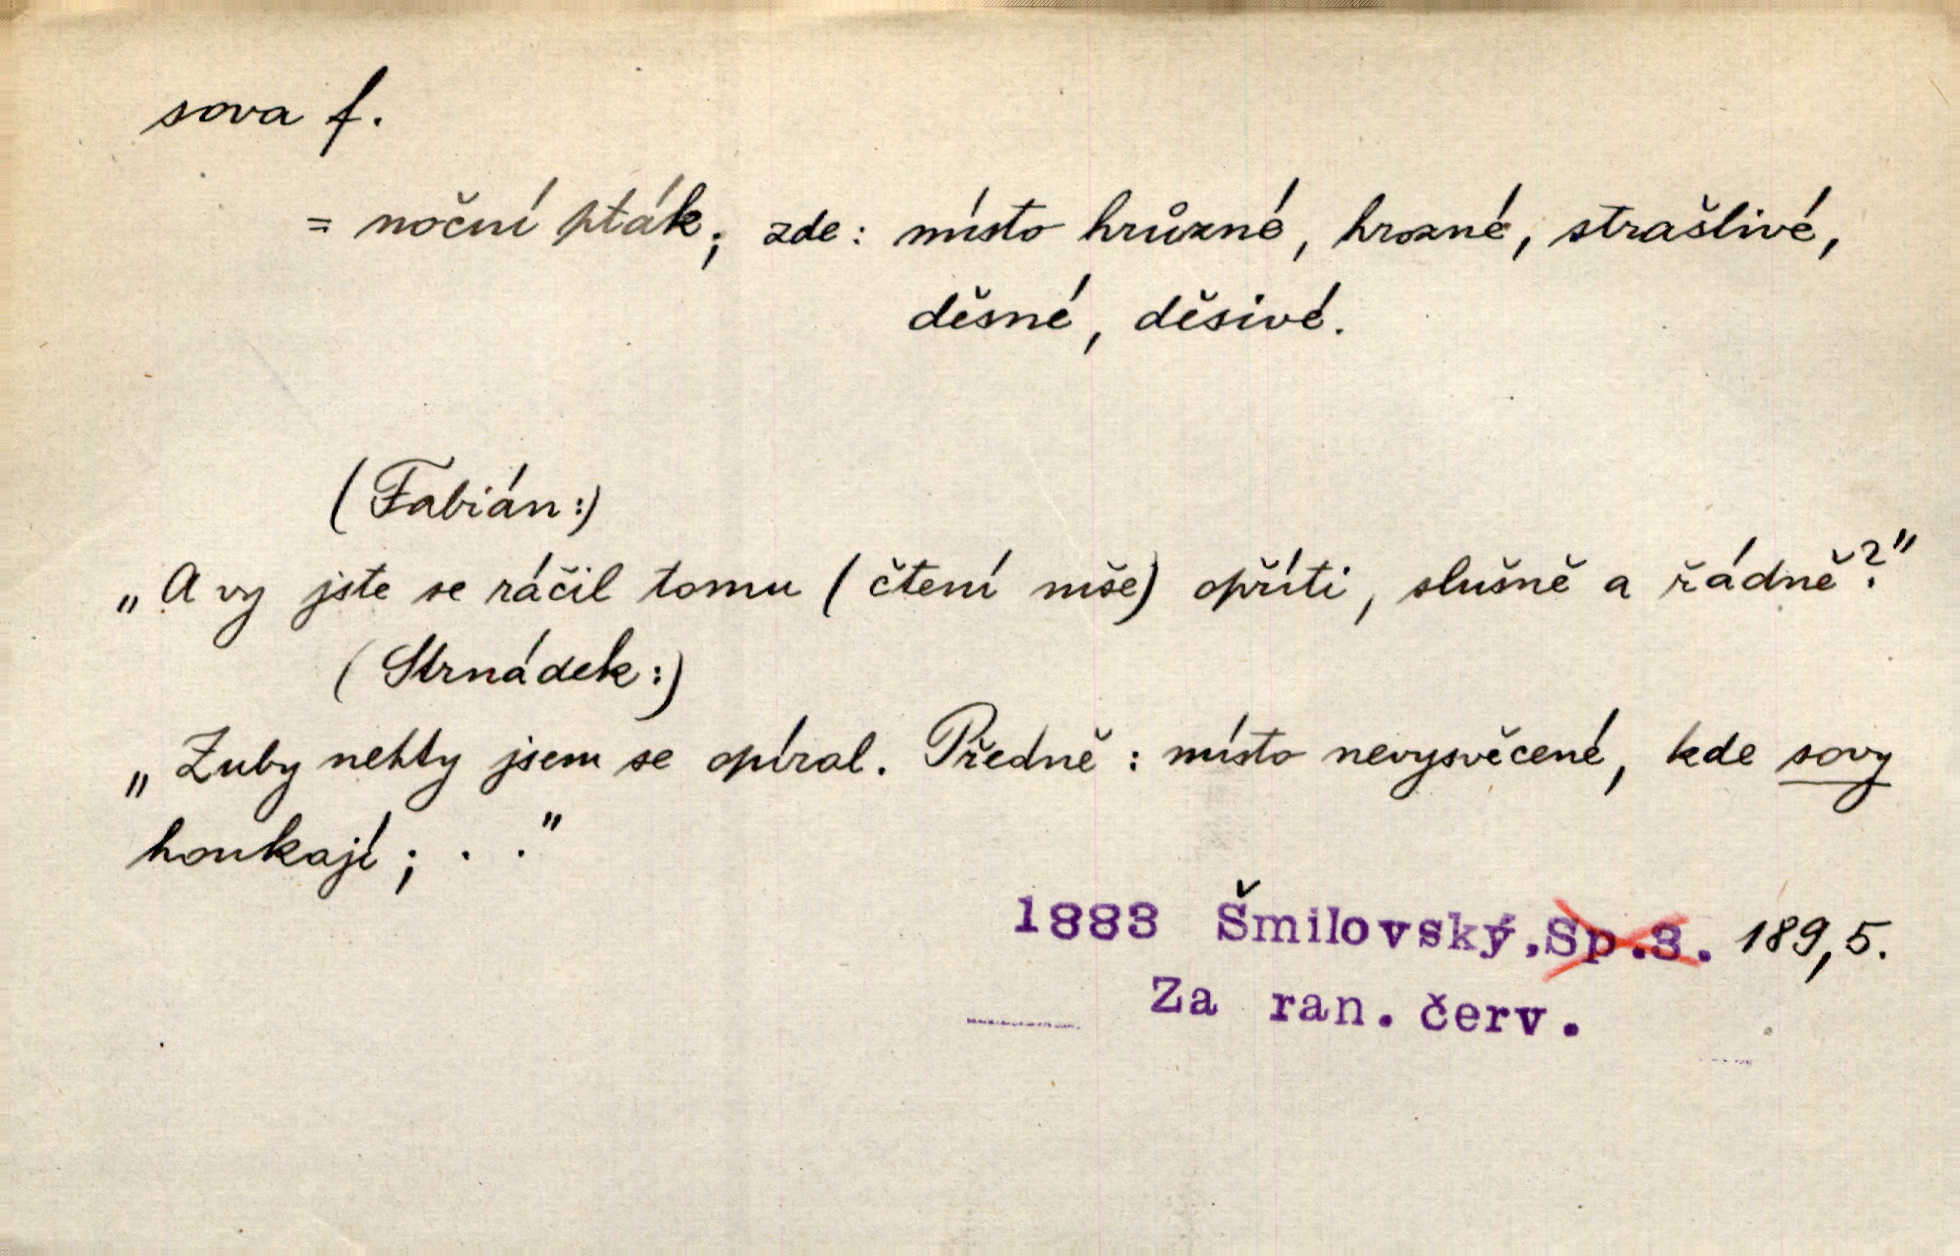 sova f.
= noční pták; zde: místo hrůzné, hrozné, strašlivé,
děsné, děsivé.
(Fabián:)
„A vy jste se ráčil tomu (čtení mše) opříti, slušně a řádně?"
(Strnádek:)
„Zuby nehty jsem se opíral. Předně: místo nevysvěcené, kde sovy
houkají; . ."
1883 Šmilovský, Sp.3. 189,5.
Za ran. červ.